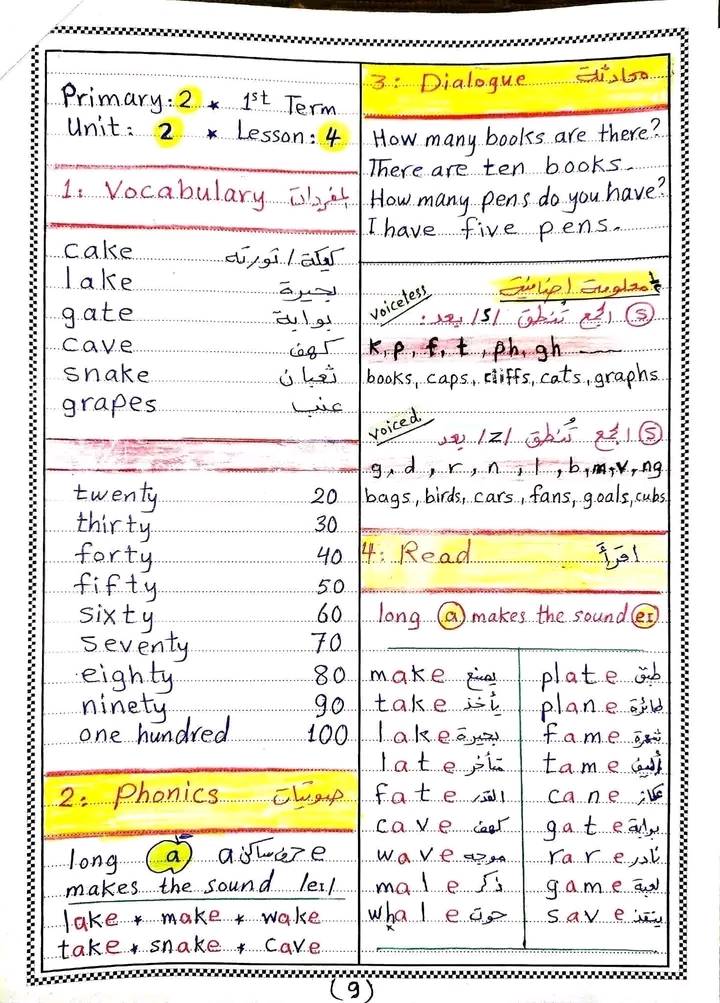 Primary: 2 * 1st Term
Unit: 2 * Lesson: 4
1: Vocabulary المفردات
cake كعكة / تورته
lake بحيرة
gate بوابة
cave كهف
snake ثعبان
grapes عنب
twenty 20
thirty 30
forty 40
fifty 50
sixty 60
seventy 70
eighty 80
ninety 90
one hundred 100
2: Phonics صوتيات
long a a حرف ساكن e
makes the sound /eɪ/
lake * make * wake
take * snake * cave
3: Dialogue محادثة
How many books are there?
There are ten books.
How many pens do you have?
I have five pens.
معلومة إضافية
voiceless
s الجمع تُنطق /s/ بعد :
k, p, f, t, ph, gh
books, caps, cliffs, cats, graphs
voiced
s الجمع تُنطق /z/ بعد
g, d, r, n, l, b, m, v, ng
bags, birds, cars, fans, goals, cubs
4: Read اقرأ
long a makes the sound eɪ
make يصنع
take يأخذ
lake بحيرة
late متأخر
fate القدر
cave كهف
wave موجه
male ذكر
whale حوت
plate طبق
plane طائرة
fame شهرة
tame أليف
cane عكاز
gate بوابة
rare نادر
game لعبة
save ينقذ
(9)